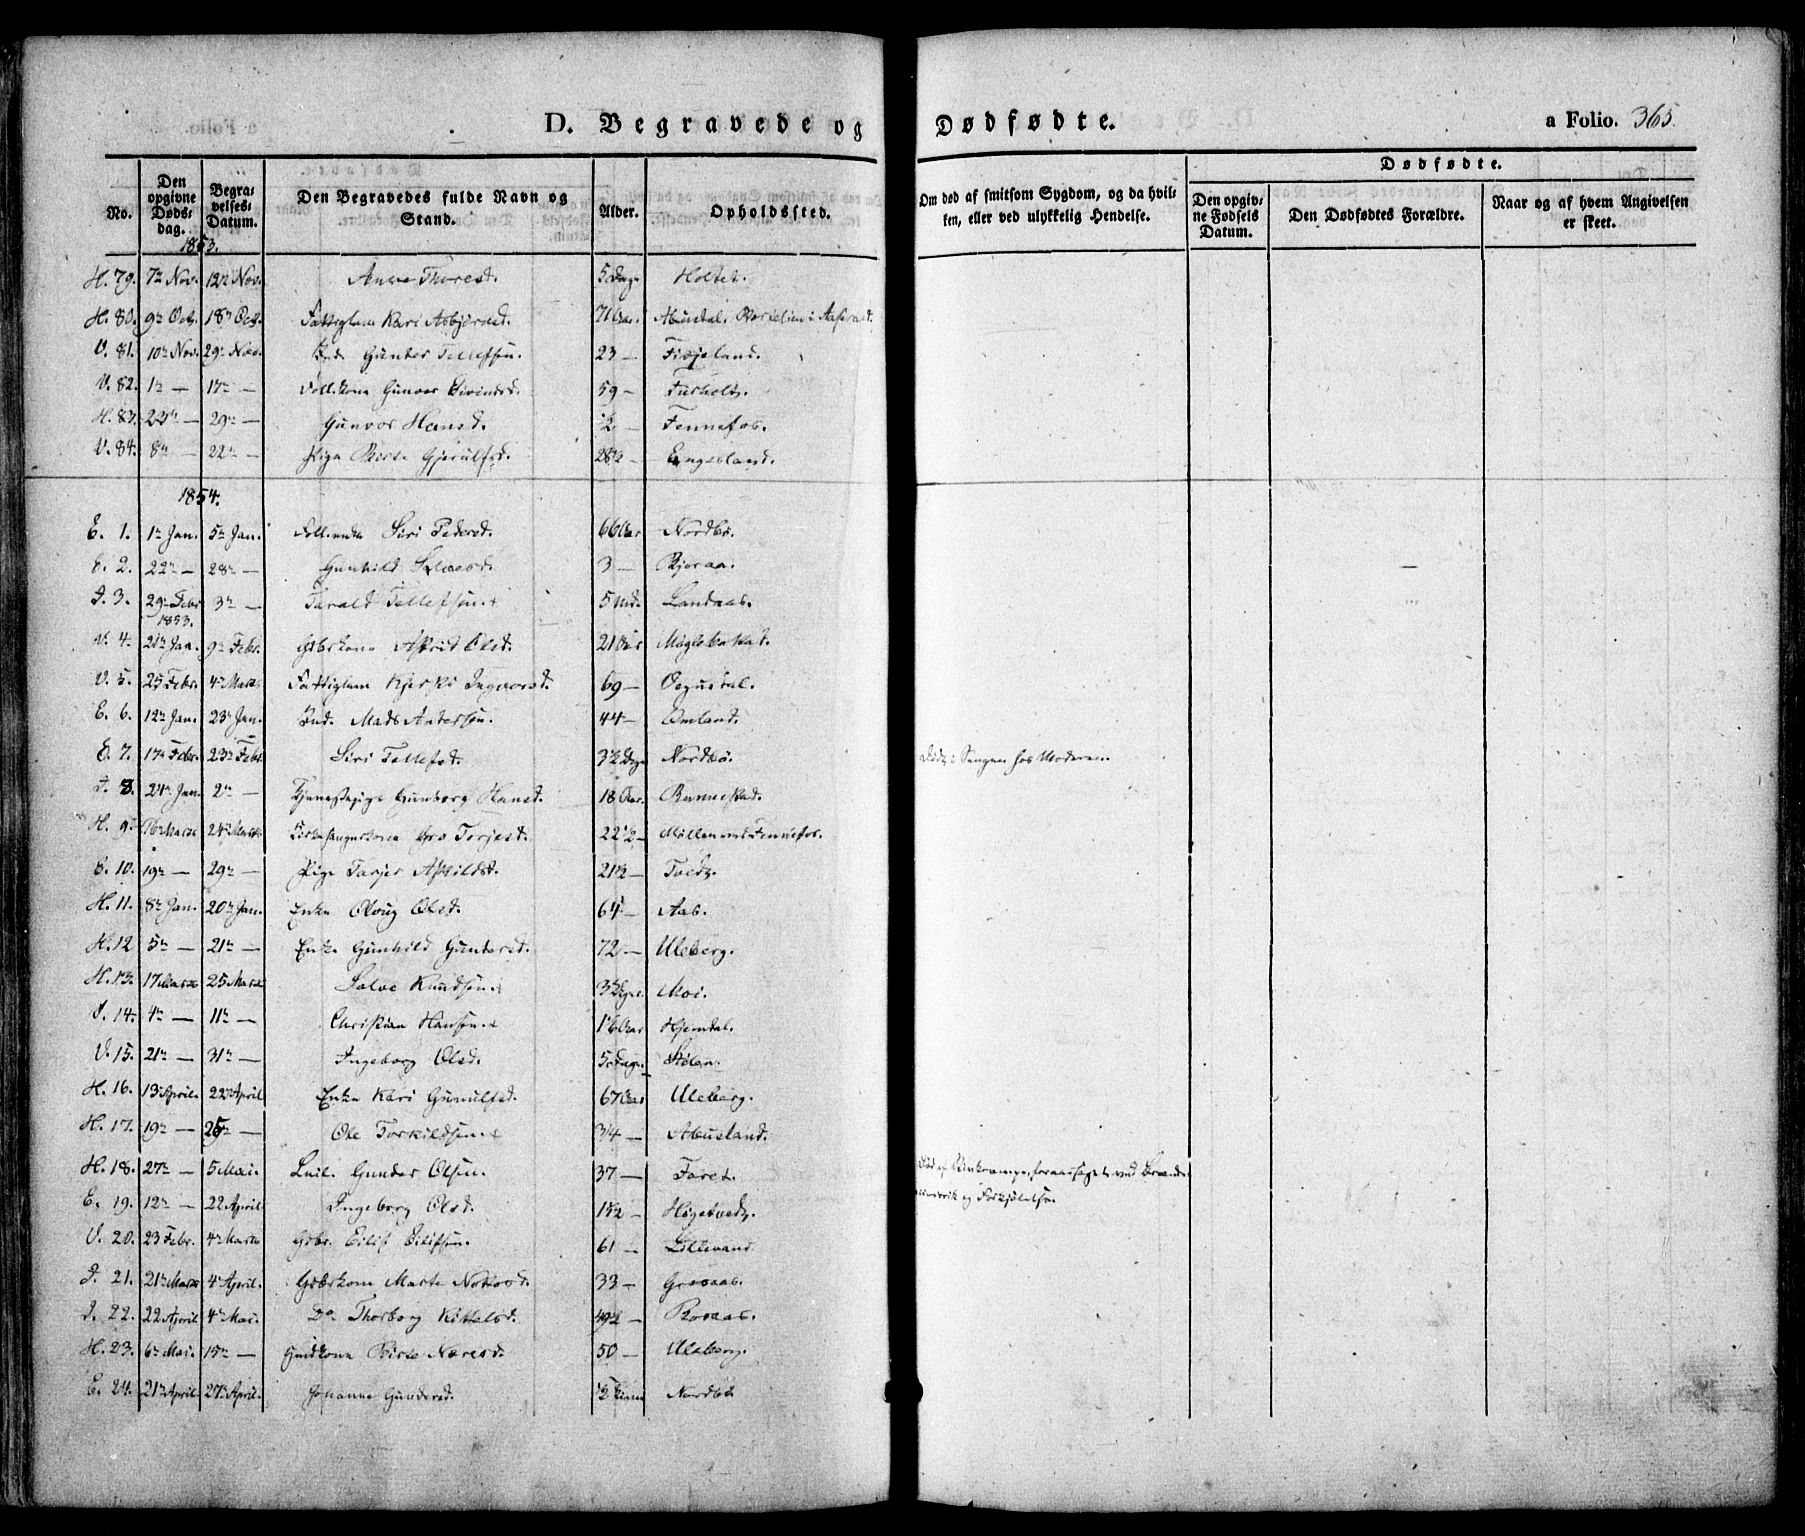 D. Begravede og Dødfødte. a Folio. 365.
No. Den opgivne Døds-dag. Begra-velses-Datum. Den Begravedes fulde Navn og Stand. Alder. Opholdssted. Om død af smitsom Sygdom, og da hvil-ken, eller ved ulykkelig Hendelse. Dødfødte. Den opgiv-ne Fødsels Datum. Den Dødfødtes Forældre. Naar og af hvem Angivelsen er skeet.
1853.
H. 79. 7de Nov. 12te Nov. Anne Thoresd. 5 Dage Holtet.
H. 80. 9de Oct. 18de Oct. Fattiglem Kari Asbjörnsd. 71 Aar.
V. 81. 10de Nov. 29de Nov. Gunder Tellefsen. 23 — Fixjeland.
V. 82. 1te — 17de — Gunvor Eivindsd. 59 —
H. 83. 29de — Gunvor Hansd. ½ — Fennefos.
V. 84. 8de — 22de — Pige Birte Gjerulfsd. 28½ — Engesland.
1854.
E. 1. 1te Jan. 5te Jan. Siri Pedersd. 66 Aar Nordbö.
E. 2. 22de — 28de — Gunhild 3 — Bjoraa.
I. 3. 29de Febr 1853. 3de — Tarald Tellefsen. 5 Md. Landaas.
V. 4. 21de Jan. 9de Febr. Gbrkone Askrid Olsd. 21 Aar
V. 5. 25 Febr. 4de Marts Fattiglem 69 —
E. 6. 12te Jan. 23de Jan. Ind. Mads Andersen. 44 — Omland.
E. 7. 17de Febr. 23de Febr. Siri Tellefsd. 3½ Dage Nordbö. Död i Sengen hos Moderen.
I. 8. 24de Jan. 2de — Tjenestepige Gunborg Hansd. 18 Aar.
H. 9. 16de Marts 24de Marts Kirkesangerkone Gro Torjesd. 22½ — Möllen ved Fennefos.
E. 10. 19de — 29de — Pige Tarjer Askildsd. 21½ — Tvedt.
H. 11. 8de Jan. 20de Jan. Enke Oloug Olsd. 64 — Aas.
H. 12 5te — 21de — Enke Gunhild Gundersd. 72 — Uleberg.
H. 13. 17 Marts 25 Marts Salve Knudsen. Moi.
I. 14. 4de — 11te — Christian Hansen. Hjemdal.
V. 15. 21de — 31te — Ingeborg Olsd. 5 Dage Stölen.
H. 16. 13de April. 22de April Enke Kari Gunulfsd. 67 Aar Uleberg.
H. 17. 19de — 25de — Ole Torkildsen. Abusland.
H. 18. 27de — 5 Mai. Gunder Olsen. 37 — Faret. Död af foraarsaget ved og Forkjölelse.
E. 19. 12te — 22 April Ingeborg Olsd. 1½ —
V. 20. 23 Febr. 4de Marts Gbr. Eilif Eilifsen. 61 — Lillevand.
I. 21. 21de Marts 4de April. Gbrkone Marte 33 — Grosaas.
I. 22. 22 April 4de Mai. Do Thorborg Kittelsd. 49½ — Rosaas.
H. 23. 6te Mai. 15de — Birte 50 — Uleberg.
E. 24. 21de April. 27de April. Johanne Gundersd. Nordbö.